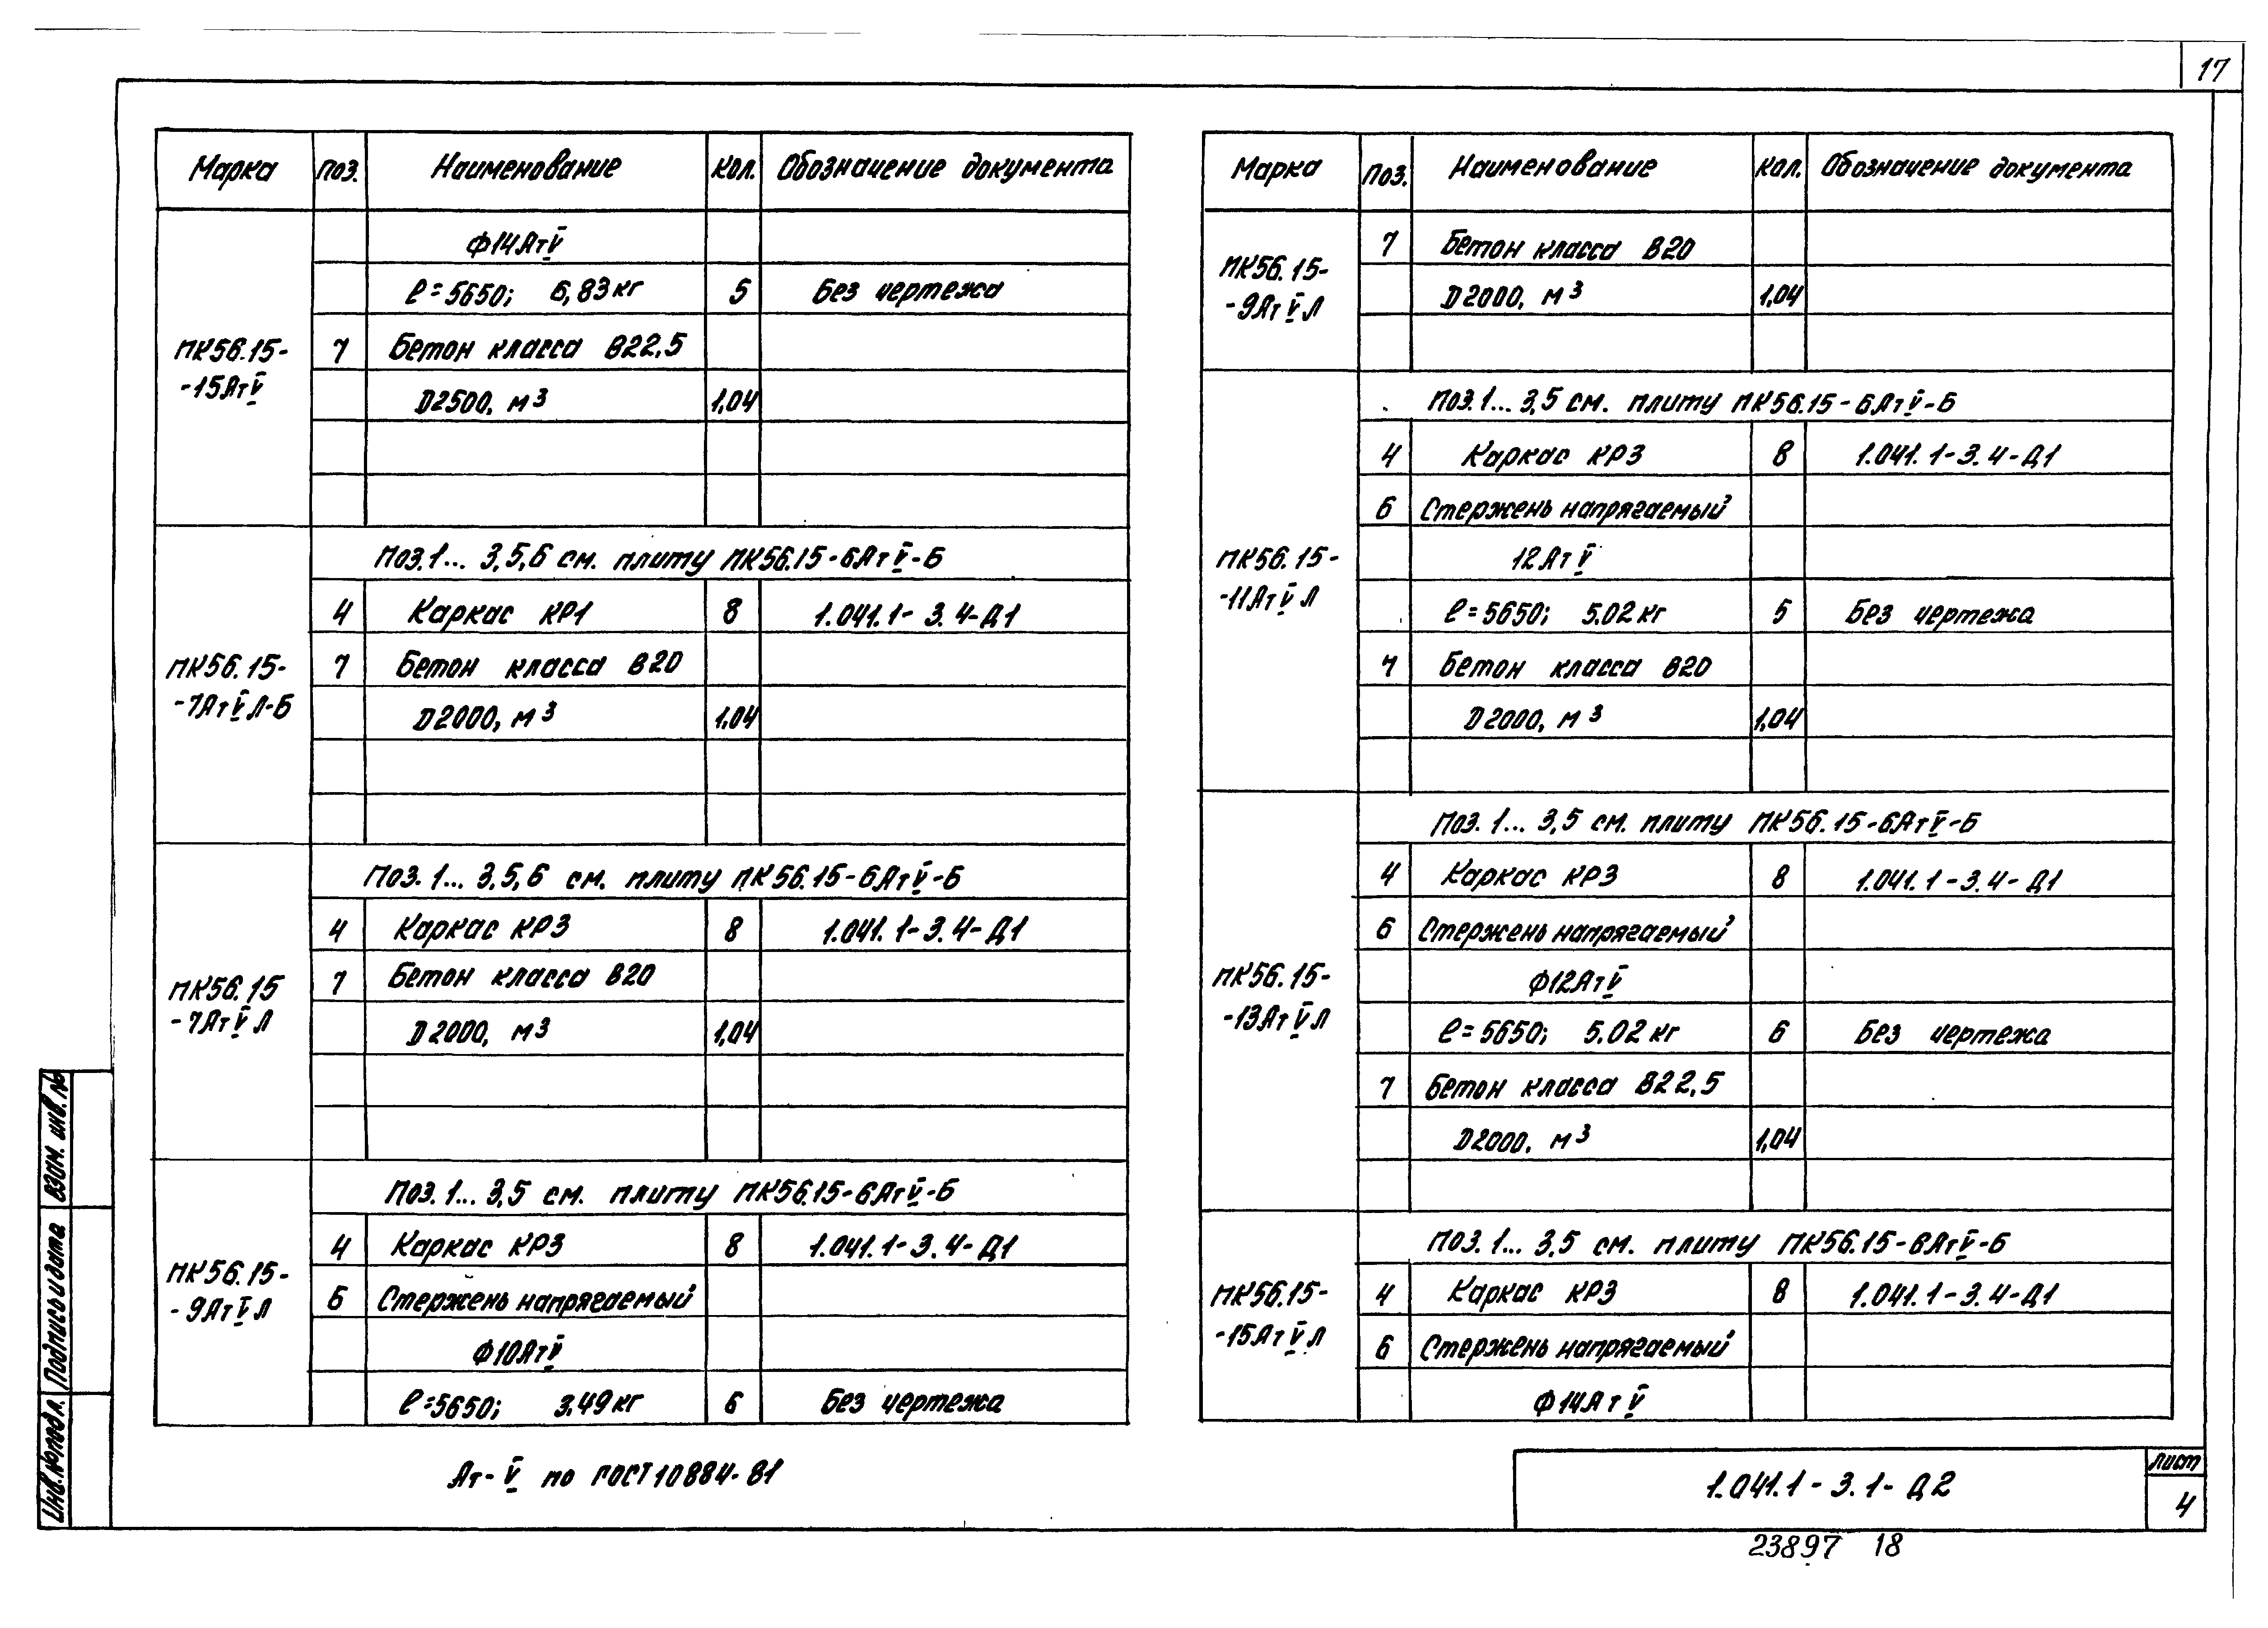 17
Марка поз. Наименование кол. Обозначение документа
ПК56.15-
-15АтV
Ф14АтV
ℓ=5650; 6,83кг 5 Без чертежа
7 Бетон класса В22,5
D2500, м3 1,04
ПК56.15-
-7АтVЛ-Б
Поз.1... 3,5,6 см. плиту ПК56.15-6АтV-Б
4 Каркас КР1 8 1.041.1-3.4-Д1
7 Бетон класса В20
D2000, м3 1,04
ПК56.15
-7АтVЛ
Поз.1... 3,5,6 см. плиту ПК56.15-6АтV-Б
4 Каркас КР3 8 1.041.1-3.4-Д1
7 Бетон класса В20
D2000, м3 1,04
ПК56.15-
-9АтVЛ
Поз.1... 3,5 см. плиту ПК56.15-6АтV-Б
4 Каркас КР3 8 1.041.1-3.4-Д1
6 Стержень напрягаемый
Ф10АтV
ℓ=5650; 3,49кг 6 Без чертежа
Марка поз. Наименование кол. Обозначение документа
ПК56.15-
-9АтVЛ
7 Бетон класса В20
D2000, м3 1,04
ПК56.15-
-11АтVЛ
Поз.1... 3,5 см. плиту ПК56.15-6АтV-Б
4 Каркас КР3 8 1.041.1-3.4-Д1
6 Стержень напрягаемый
12АтV
ℓ=5650; 5.02кг 5 Без чертежа
7 Бетон класса В20
D2000, м3 1,04
ПК56.15-
-13АтVЛ
Поз.1... 3,5 см. плиту ПК56.15-6АтV-Б
4 Каркас КР3 8 1.041.1-3.4-Д1
6 Стержень напрягаемый
Ф12АтV
ℓ=5650; 5.02кг 6 Без чертежа
7 Бетон класса В22,5
D2000, м3 1,04
ПК56.15-
-15АтVЛ
Поз.1... 3,5 см. плиту ПК56.15-6АтV-Б
4 Каркас КР3 8 1.041.1-3.4-Д1
6 Стержень напрягаемый
Ф14АтV
Ат-V по ГОСТ10884-81
1.041.1-3.1-Д2
лист
4
23897 18
Инв.№подл. Подпись и дата Взам. инв.№